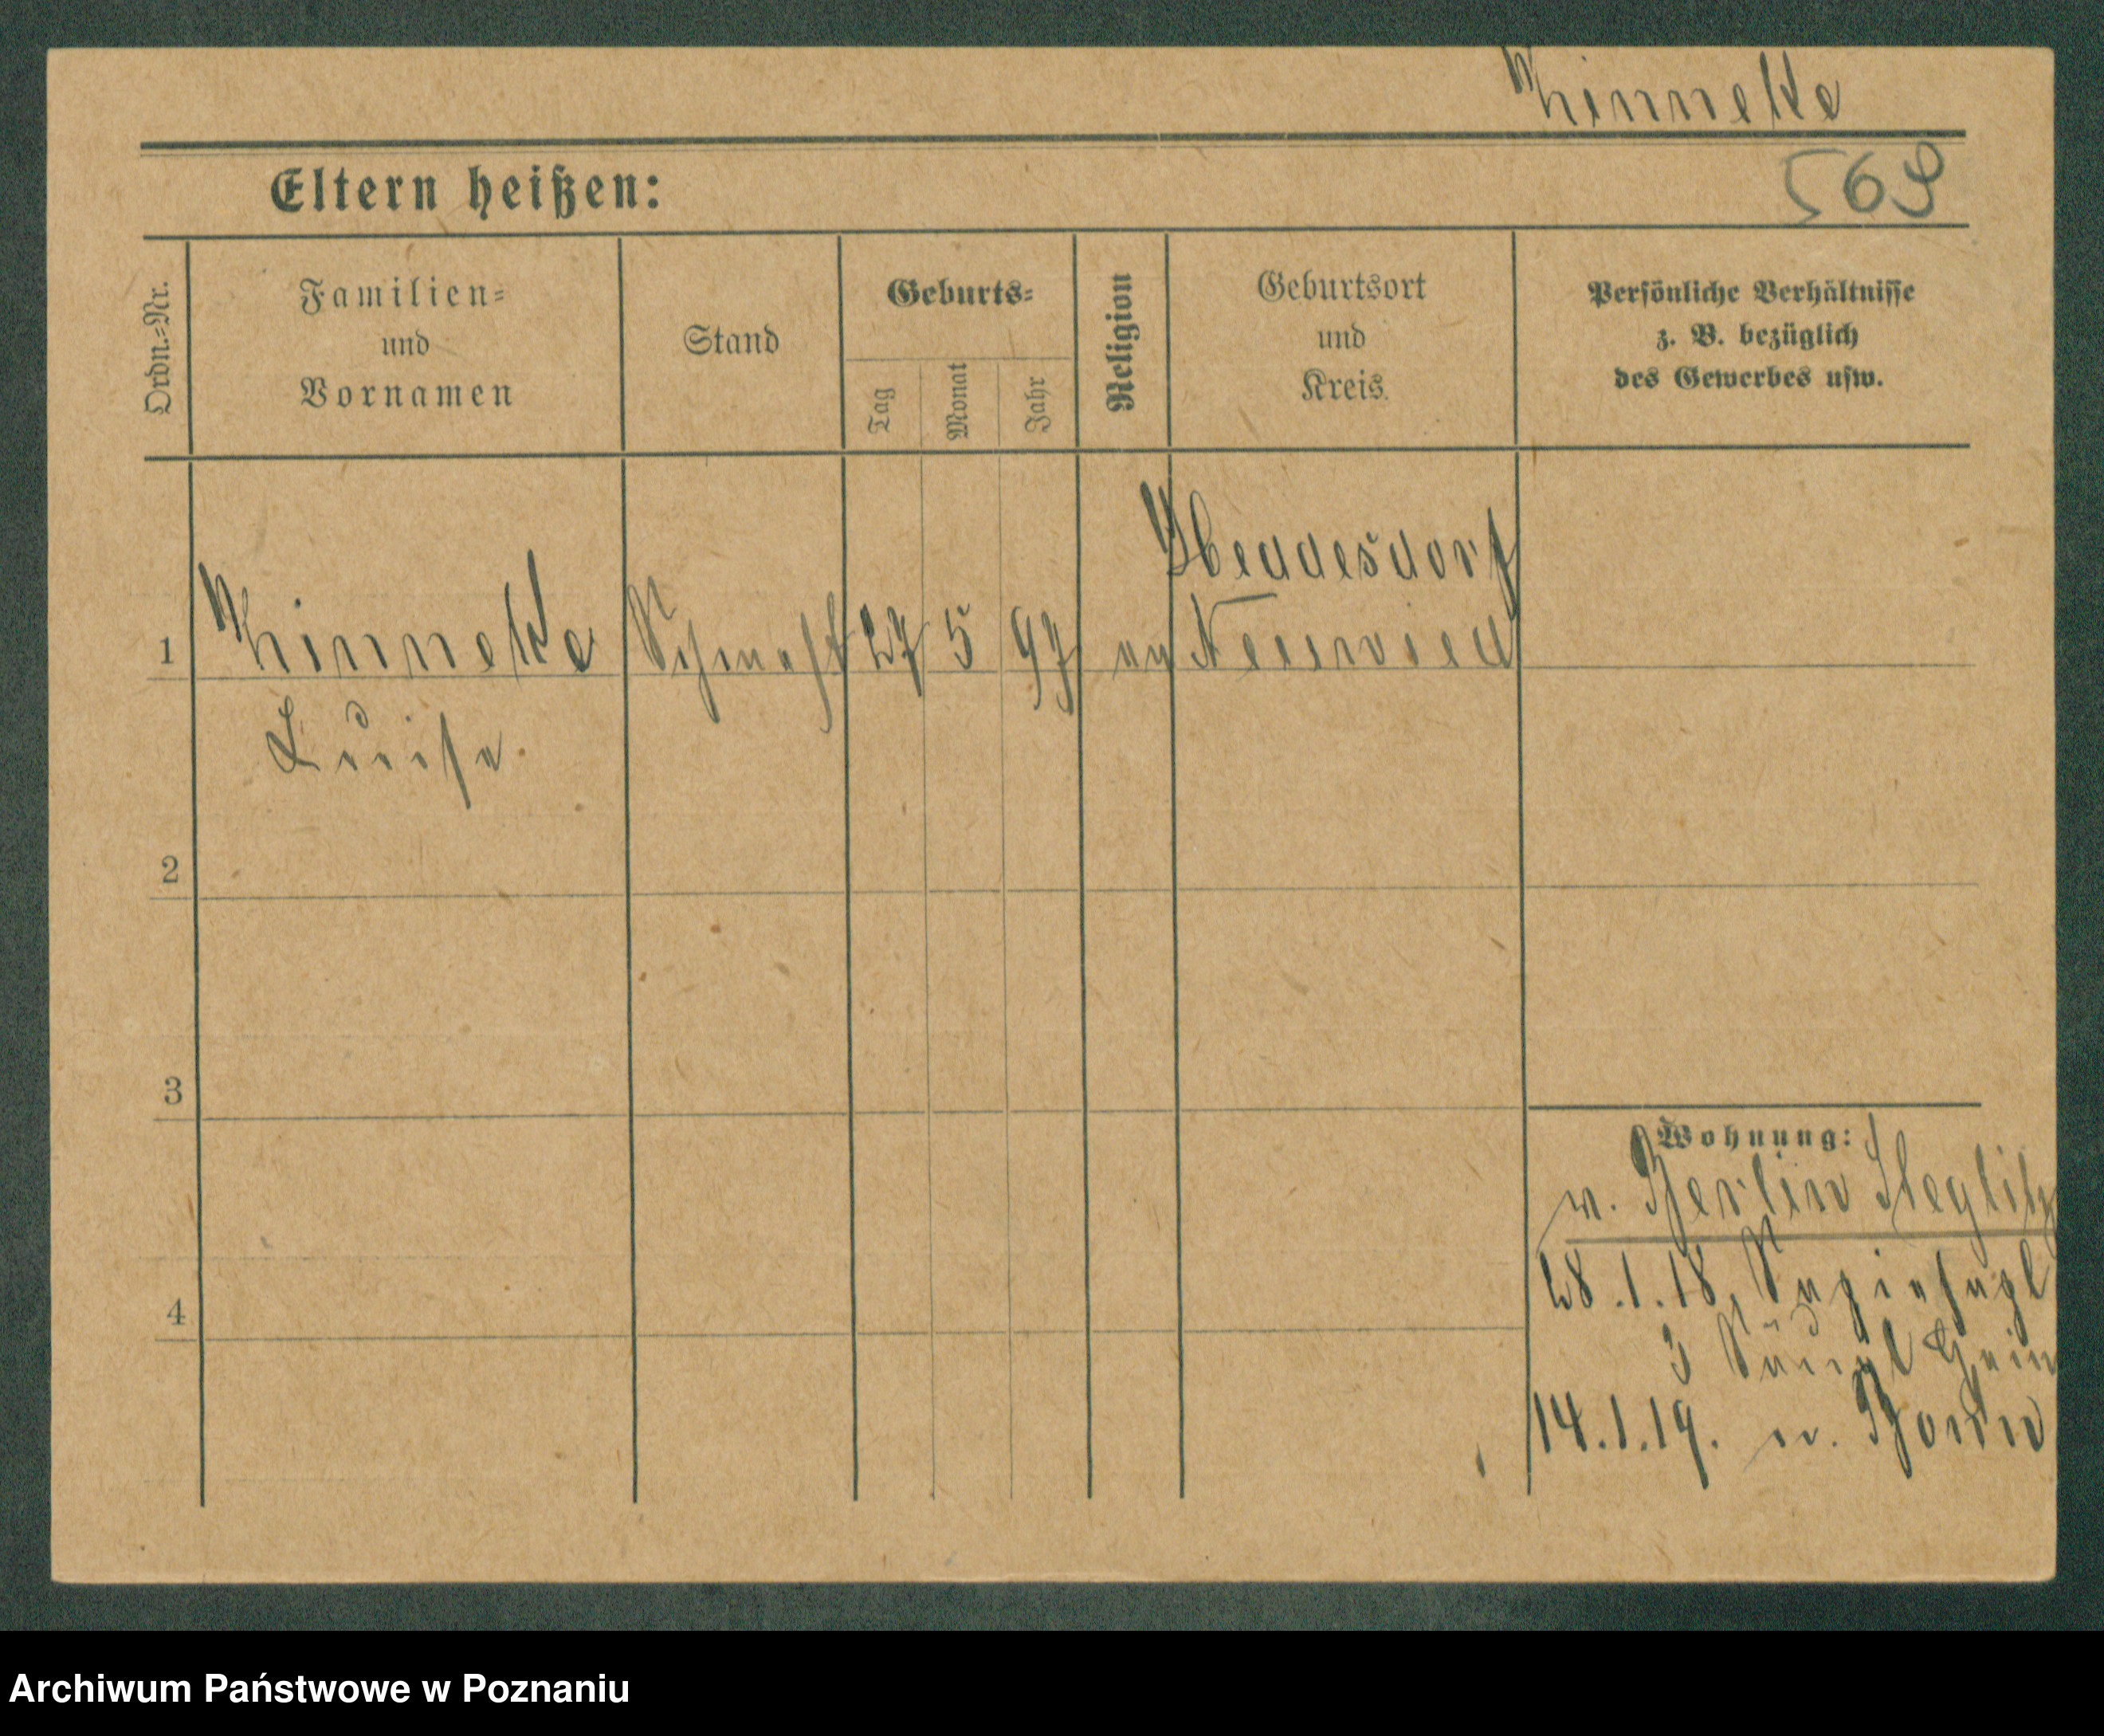 Eltern heißen:
569
Ordn.=Nr.
Familien=
und
Vornamen
Stand
Geburts=
Tag
Monat
Jahr
Religion
Geburtsort
und
Kreis
Persönliche Verhältnisse
z. B. bezüglich
des Gewerbes usw.
Heddesdorf
1 Schwest 27 5 97 ev Neuwied
Luise
2
3
4
Wohnung:
v. Berlin Steglitz
28.1.18.
3 Säugl Heim
14.1.19. n. Bonn
Archiwum Państwowe w Poznaniu